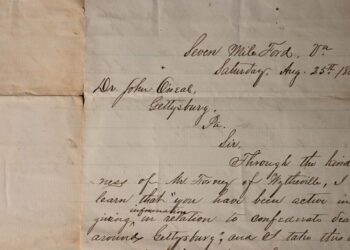 Seven Mile Ford, Va
Saturday, Aug. 25th 18
Dr. John Oneal,
Gettysburg,
Pa.
Sir.
Through the kind
ness of Mr Forney of Wytheville, I
learn that "you have been active in
information
giving, in relation to confederate dea
around Gettysburg", and I take this